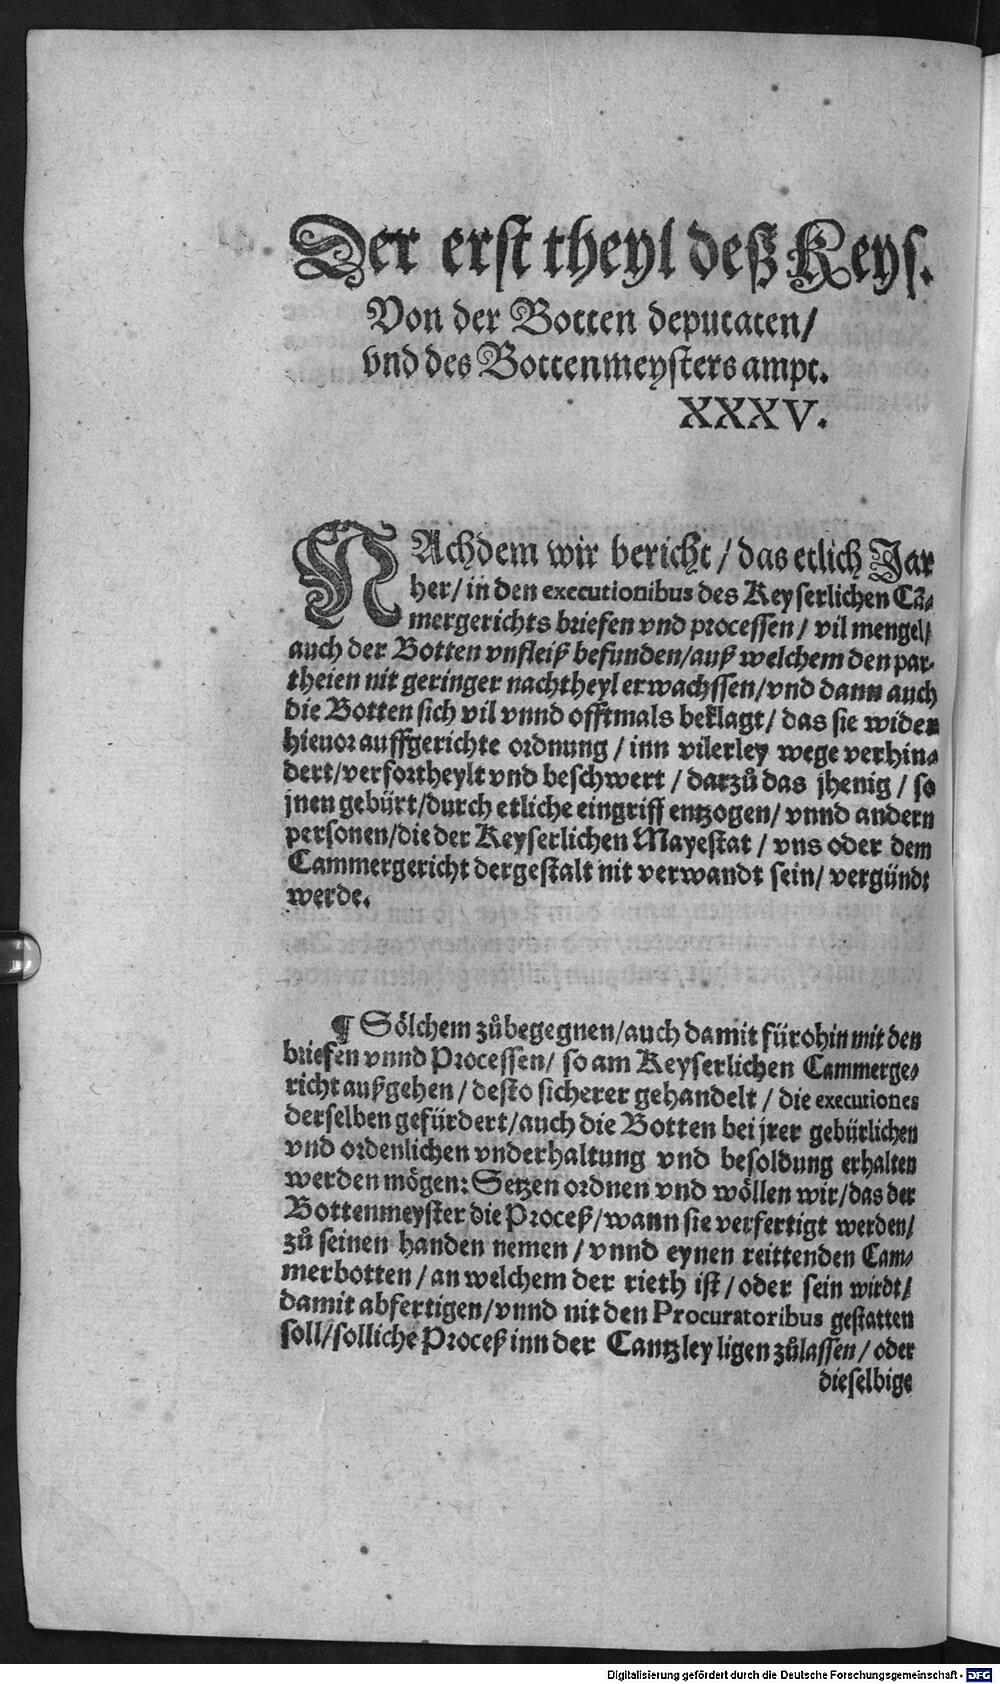 Der erst theyl deß Keys.
Von der Botten deputaten/
vnd des Bottenmeysters ampt.
XXXV.
NAchdem wir bericht / das etlich Jar
her / in den executionibus des Keyserlichen Cā-
mergerichts briefen vnd processen / vil mengel/
auch der Botten vnfleiß befunden/auß welchem den par-
theien nit geringer nachtheyl erwachssen/vnd dann auch
die Botten sich vil vnnd offtmals beklagt/ das sie wider
hieuor auffgerichte ordnung / inn vilerley wege verhin-
dert/verfortheylt vnd beschwert / darzů das jhenig / so
jnen gebürt/durch etliche eingriff entzogen/ vnnd andern
personen/die der Keyserlichen Mayestat / vns oder dem
Cammergericht dergestalt nit verwandt sein/ vergündt
werde.
¶ Sölchem zůbegegnen/auch damit fürohin mit den
briefen vnnd Processen/ so am Keyserlichen Cammerge-
richt außgehen / desto sicherer gehandelt / die executiones
derselben gefürdert/auch die Botten bei jrer gebürlichen
vnd ordenlichen vnderhaltung vnd besoldung erhalten
werden mögen: Setzen ordnen vnd wöllen wir/das der
Bottenmeyster die Proceß/wann sie verfertigt werden/
zů seinen handen nemen / vnnd eynen reittenden Cam-
merbotten / an welchem der rieth ist / oder sein wirdt/
damit abfertigen/vnnd nit den Procuratoribus gestatten
soll/solliche Proceß inn der Cantzley ligen zůlassen / oder
dieselbige
Digitalisierung gefördert durch die Deutsche Forschungsgemeinschaft - DFG